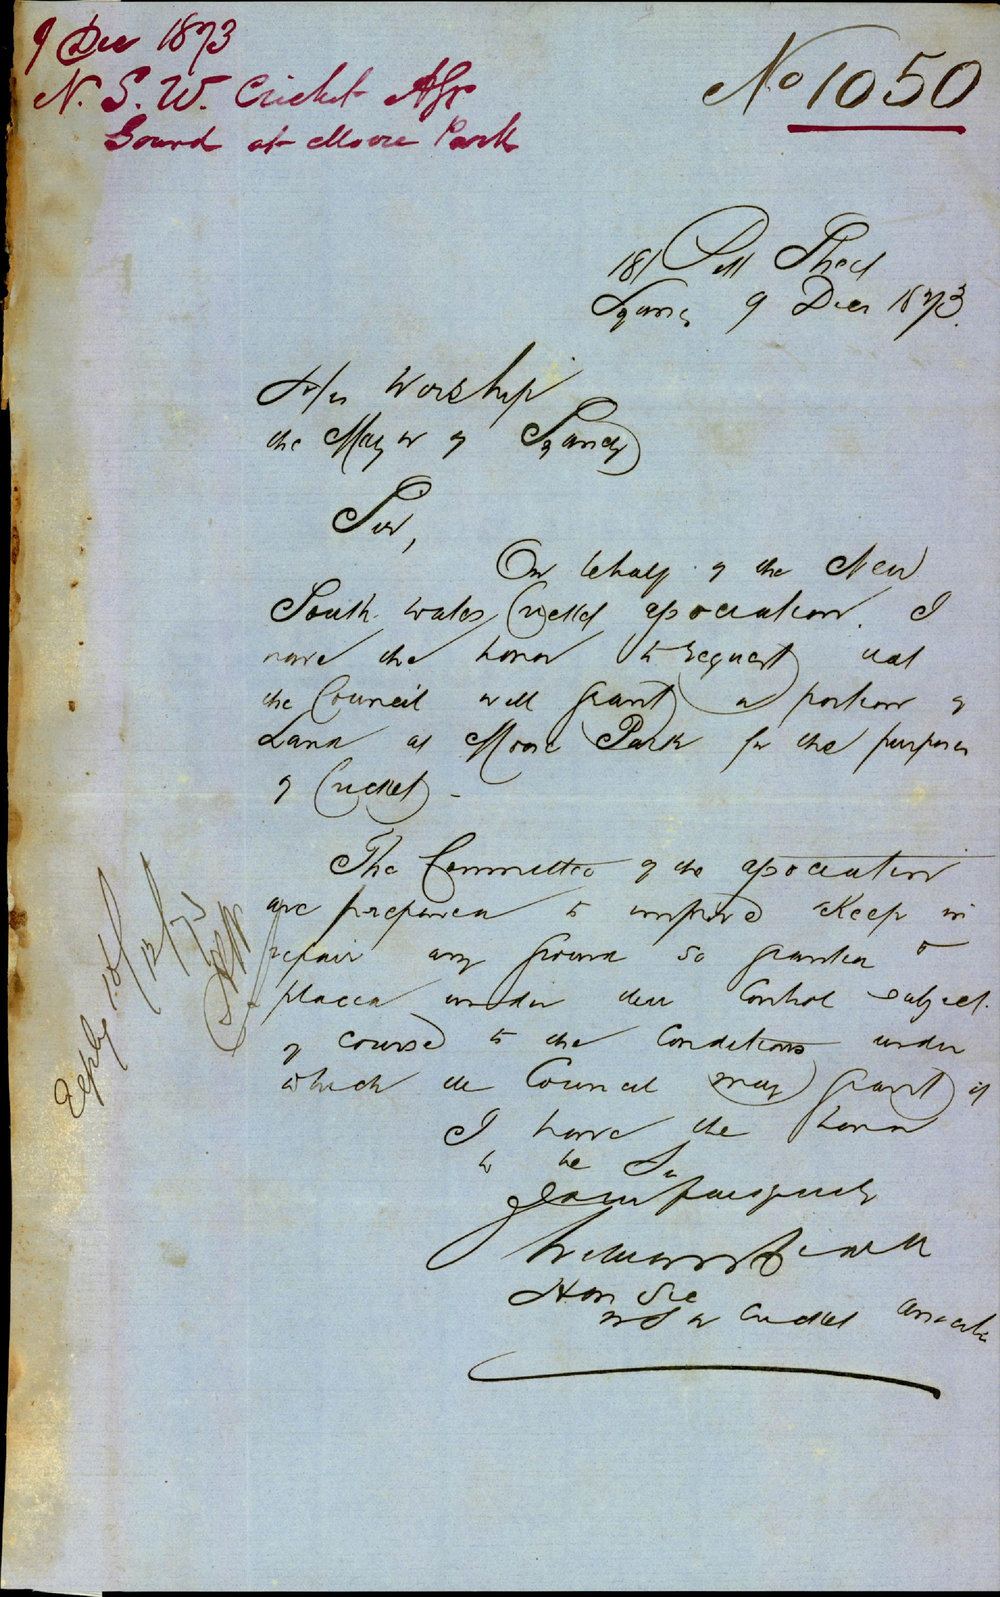 9 Dec 1873
N. S. W. Cricket Assn
Ground at Moore Park
No 1050
181 Pitt Street
Sydney 9 Decr 1873.
His Worship
the Mayor of Sydney
Sir,
On behalf of the New
South Wales Cricket association. I
have the honor to request that
the Council will grant a portion of
Land at Moore Park for the purposes
of Cricket -
The Committee of the association
are prepared to improve & keep in
repair any ground so granted &
placed under their Control subject
of course to the Conditions under
which the Council may grant it
I have the honor
to be Sir
Yours
Hon Sec
N S W Cricket Associatn
Reply 10/
12/73